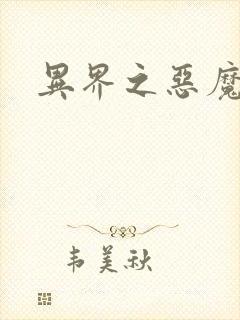 異界之惡魔
韦美秋